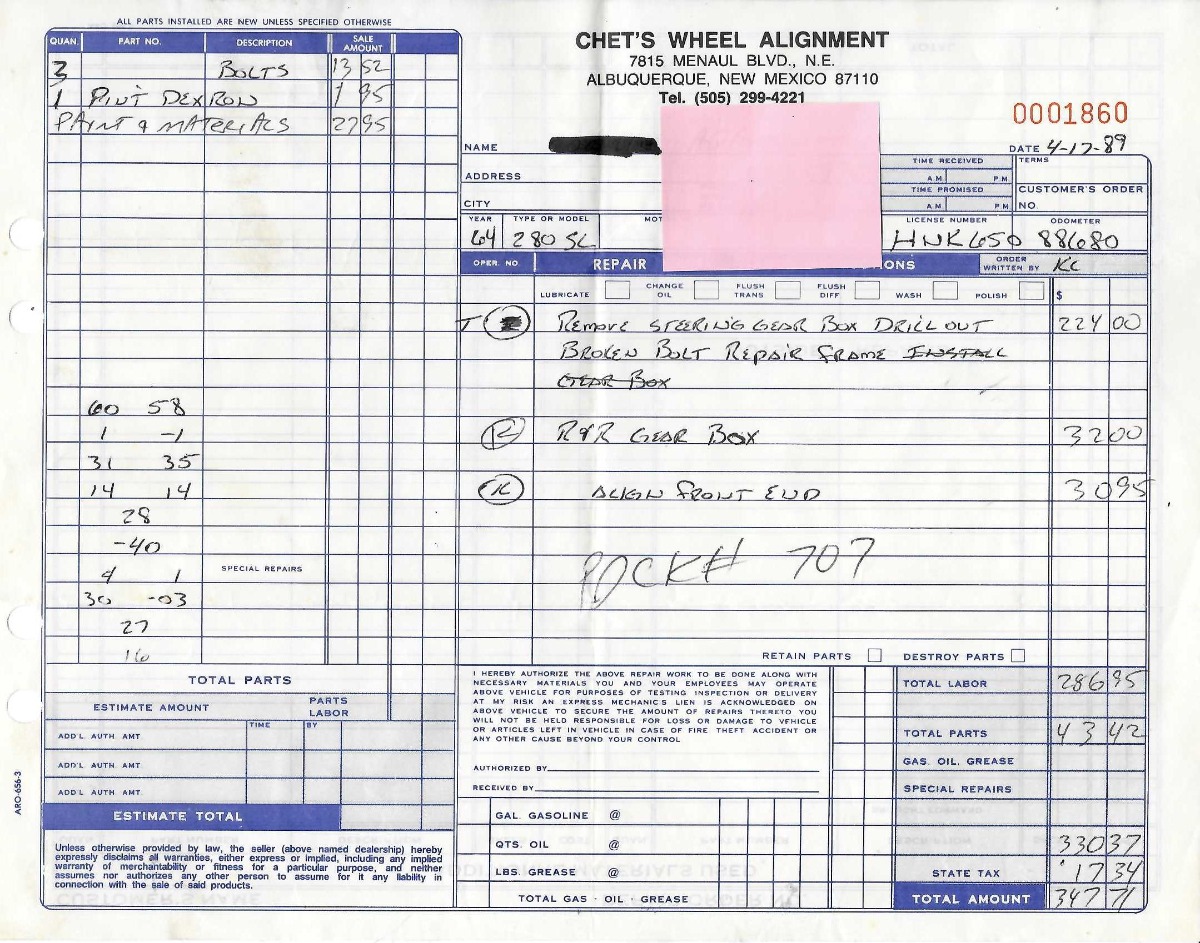 ALL PARTS INSTALLED ARE NEW UNLESS SPECIFIED OTHERWISE
QUAN. PART NO. DESCRIPTION SALE AMOUNT
3 BOLTS 13 52
1 PINT DEXRON 1 95
PAINT & MATERIALS 27 95
60 58
1 -1
31 35
14 14
28
-40
4 1
SPECIAL REPAIRS
30 -03
27
16
TOTAL PARTS
ESTIMATE AMOUNT PARTS LABOR
TIME BY
ADD'L. AUTH. AMT.
ADD'L. AUTH. AMT.
ADD'L. AUTH. AMT.
ESTIMATE TOTAL
Unless otherwise provided by law, the seller (above named dealership) hereby
expressly disclaims all warranties, either express or implied, including any implied
warranty of merchantability or fitness for a particular purpose, and neither
assumes nor authorizes any other person to assume for it any liability in
connection with the sale of said products.
ARO-656-3
CHET'S WHEEL ALIGNMENT
7815 MENAUL BLVD., N.E.
ALBUQUERQUE, NEW MEXICO 87110
Tel. (505) 299-4221
0001860
NAME
DATE 4-17-89
ADDRESS
TIME RECEIVED
A.M. P.M.
TERMS
TIME PROMISED
A.M. P.M.
CUSTOMER'S ORDER NO.
CITY
YEAR TYPE OR MODEL MOT LICENSE NUMBER ODOMETER
64 280 SL HNK650 88680
OPER. NO. REPAIR ONS ORDER WRITTEN BY KC
LUBRICATE CHANGE OIL FLUSH TRANS FLUSH DIFF WASH POLISH $
T REMOVE STEERING GEAR BOX DRILL OUT 224 00
BROKEN BOLT REPAIR FRAME INSTALL
GEAR BOX
R&R GEAR BOX 32 00
K ALIGN FRONT END 30 95
ROCK# 707
RETAIN PARTS DESTROY PARTS
I HEREBY AUTHORIZE THE ABOVE REPAIR WORK TO BE DONE ALONG WITH
NECESSARY MATERIALS YOU AND YOUR EMPLOYEES MAY OPERATE
ABOVE VEHICLE FOR PURPOSES OF TESTING INSPECTION OR DELIVERY
AT MY RISK AN EXPRESS MECHANIC'S LIEN IS ACKNOWLEDGED ON
ABOVE VEHICLE TO SECURE THE AMOUNT OF REPAIRS THERETO YOU
WILL NOT BE HELD RESPONSIBLE FOR LOSS OR DAMAGE TO VEHICLE
OR ARTICLES LEFT IN VEHICLE IN CASE OF FIRE THEFT ACCIDENT OR
ANY OTHER CAUSE BEYOND YOUR CONTROL
AUTHORIZED BY
RECEIVED BY
TOTAL LABOR 286 95
TOTAL PARTS 43 42
GAS, OIL, GREASE
SPECIAL REPAIRS
GAL. GASOLINE @
QTS. OIL @ 330 37
LBS. GREASE @ STATE TAX 17 34
TOTAL GAS - OIL - GREASE TOTAL AMOUNT 347 71